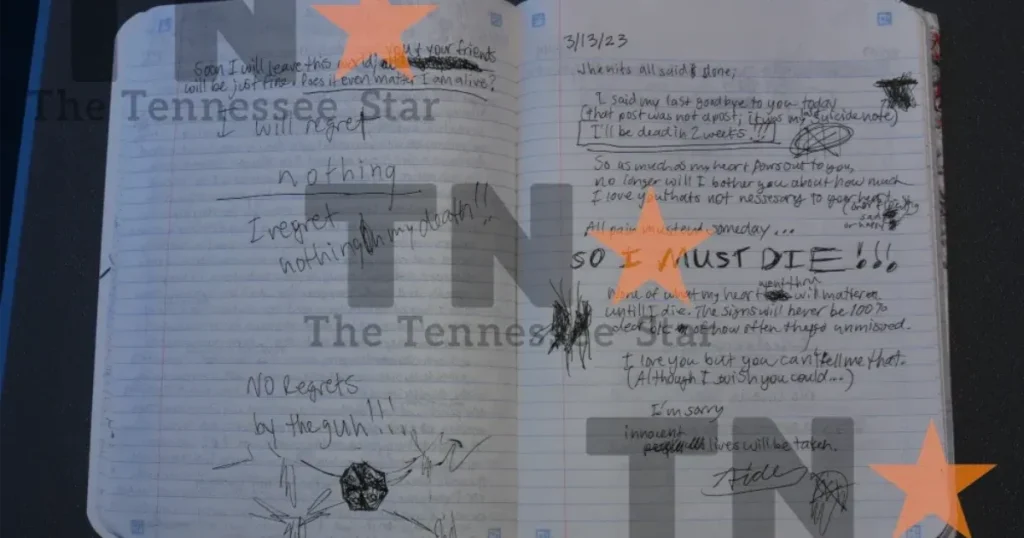 Soon I will leave this you & your friends
will be just fine. Does it even matter I am alive?
The Tennessee Star
I will regret
nothing
I regret
nothing in my death!!
NO Regrets
by the gun!!!
3/13/23
all said & done,
I said my last goodbye to you today
(that post was not a post, it was my suicide note)
I'll be dead in 2 weeks!!!
So as much as my heart pours out to you,
no longer will I bother you about how much
I love you thats not nessesary to your
sad
All pain must end someday...
SO I MUST DIE!!!
went thru
None of what my heart will matter
untill I die. The signs will never be 100%
clear b/c of how often they go unmissed.
The Tennessee Star
I love you but you can't tell me that.
(Although I wish you could...)
I'm sorry
innocent
lives will be taken.
TN
TN
TN